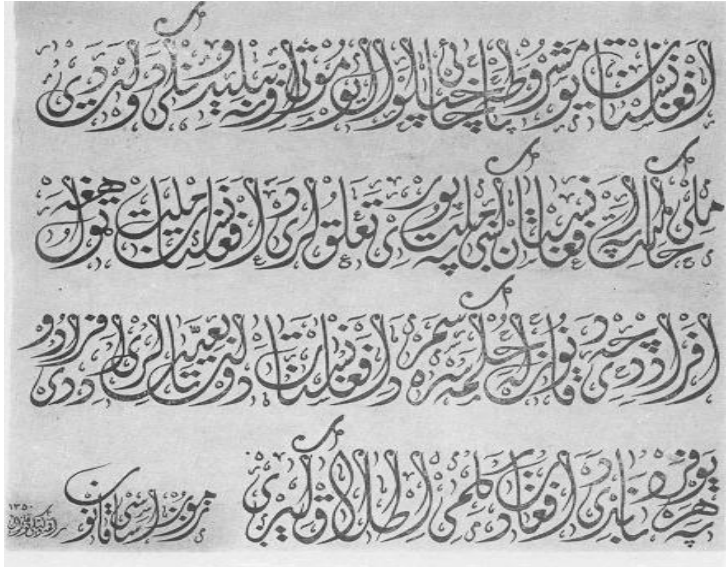 افغانستان یو مشروطه پاچاهي خپلواک یو موټی او نه بېلېدونکی دولت دی
ملي حاکمیت په افغانستان کښې په ملت پورې تعلق لري د افغانستان ملت ټول هغه
افراد دي چه د قوانینو له احکامو سره سم د افغانستان د دولت تابعیت لري د دې افرادو
په هر یوه فرد باندې د افغان کلمې اطلاق کیږي زموږ اساسي قانون
۱۳۵۰